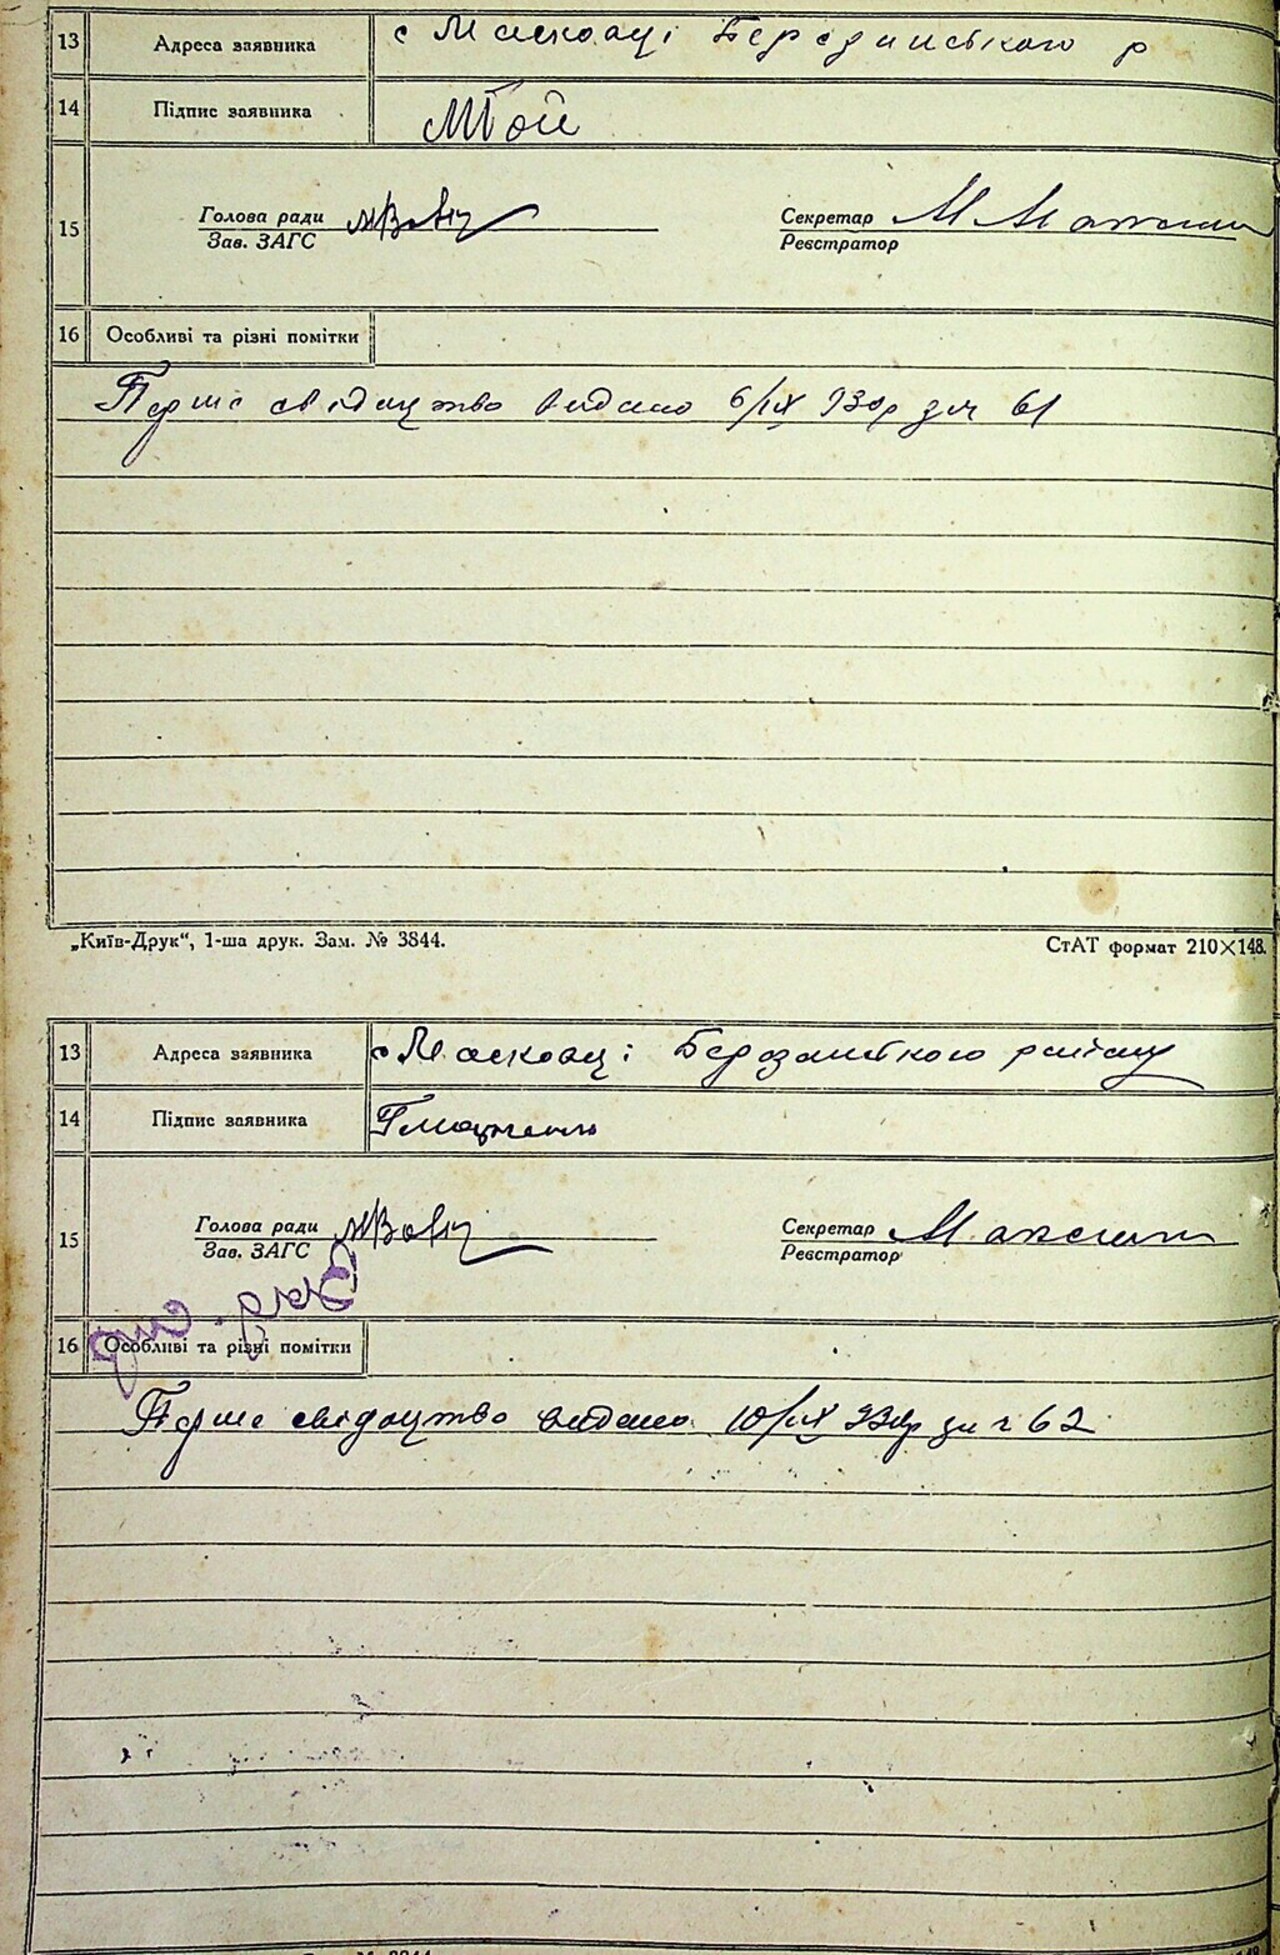 13 Адреса заявника с Масковці Березанського р
14 Підпис заявника
15 Голова ради Секретар М Максим
Зав. ЗАГС Реєстратор
16 Особливі та різні помітки
Перше свідоцтво видано 6/IX 930р за ч 61
„Київ-Друк“, 1-ша друк. Зам. № 3844. СтАТ формат 210×148.
13 Адреса заявника с Масковці Березанського району
14 Підпис заявника
15 Голова ради Секретар Максим
Зав. ЗАГС Реєстратор
16 Особливі та різні помітки
Перше свідоцтво видано 10/IX 930р за ч 62